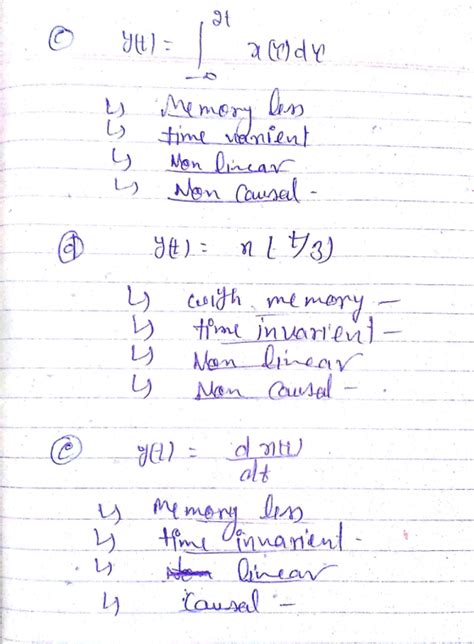 (c) y(t) = ∫_{-∞}^{2t} x(τ)dτ
↳ Memory less
↳ time varient
↳ Non linear
↳ Non Causal -
(d) y(t) = x(t/3)
↳ with memory -
↳ time invarient -
↳ Non linear
↳ Non Causal -
(e) y(t) = d x(t) / dt
↳ Memory less
↳ time invarient -
↳ linear
↳ Causal -